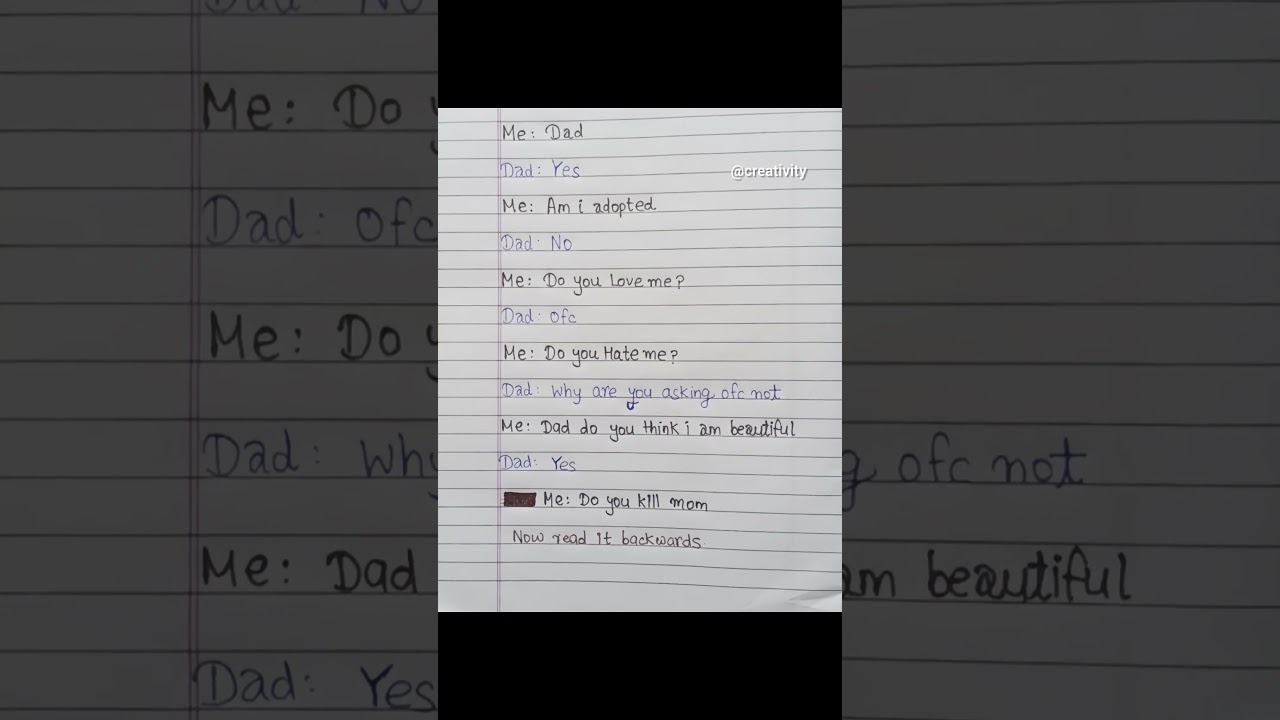 Me: Dad
Dad: Yes
@creativity
Me: Am i adopted
Dad: No
Me: Do you Love me?
Dad: Ofc
Me: Do you Hate me?
Dad: Why are you asking ofc not
Me: Dad do you think i am beautiful
Dad: Yes
Me: Do you kill mom
Now read it backwards